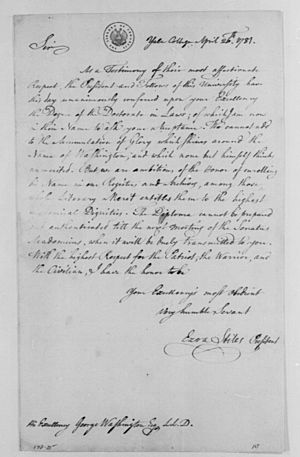 Sir Yale College April 26th 1781.
As a Testimony of their most affectionate
Respect, the President and Fellows of this University have
this day unanimously conferred upon your Excellency
the Degree of the Doctorate in Laws; of which I am now
in their Name to ask your Acceptance. We cannot add
to the Accumulation of Glory which shines around the
Name of Washington, and which none but himself thinks
unmerited. But we are ambitious of the honor of enrolling
the Name in our Registers and Archives, among those
whose Literary Merit entitles them to the highest
Academical Dignities. The Diploma cannot be prepared
and authenticated till the next meeting of the Senatus
Academicus, when it will be duly transmitted to you.
With the highest Respect for the Patriot, the Warrior, and
the Civilian, I have the honor to be
Your Excellency's most obedient
very humble Servant
Ezra Stiles President
His Excellency George Washington Esq. L.L.D.